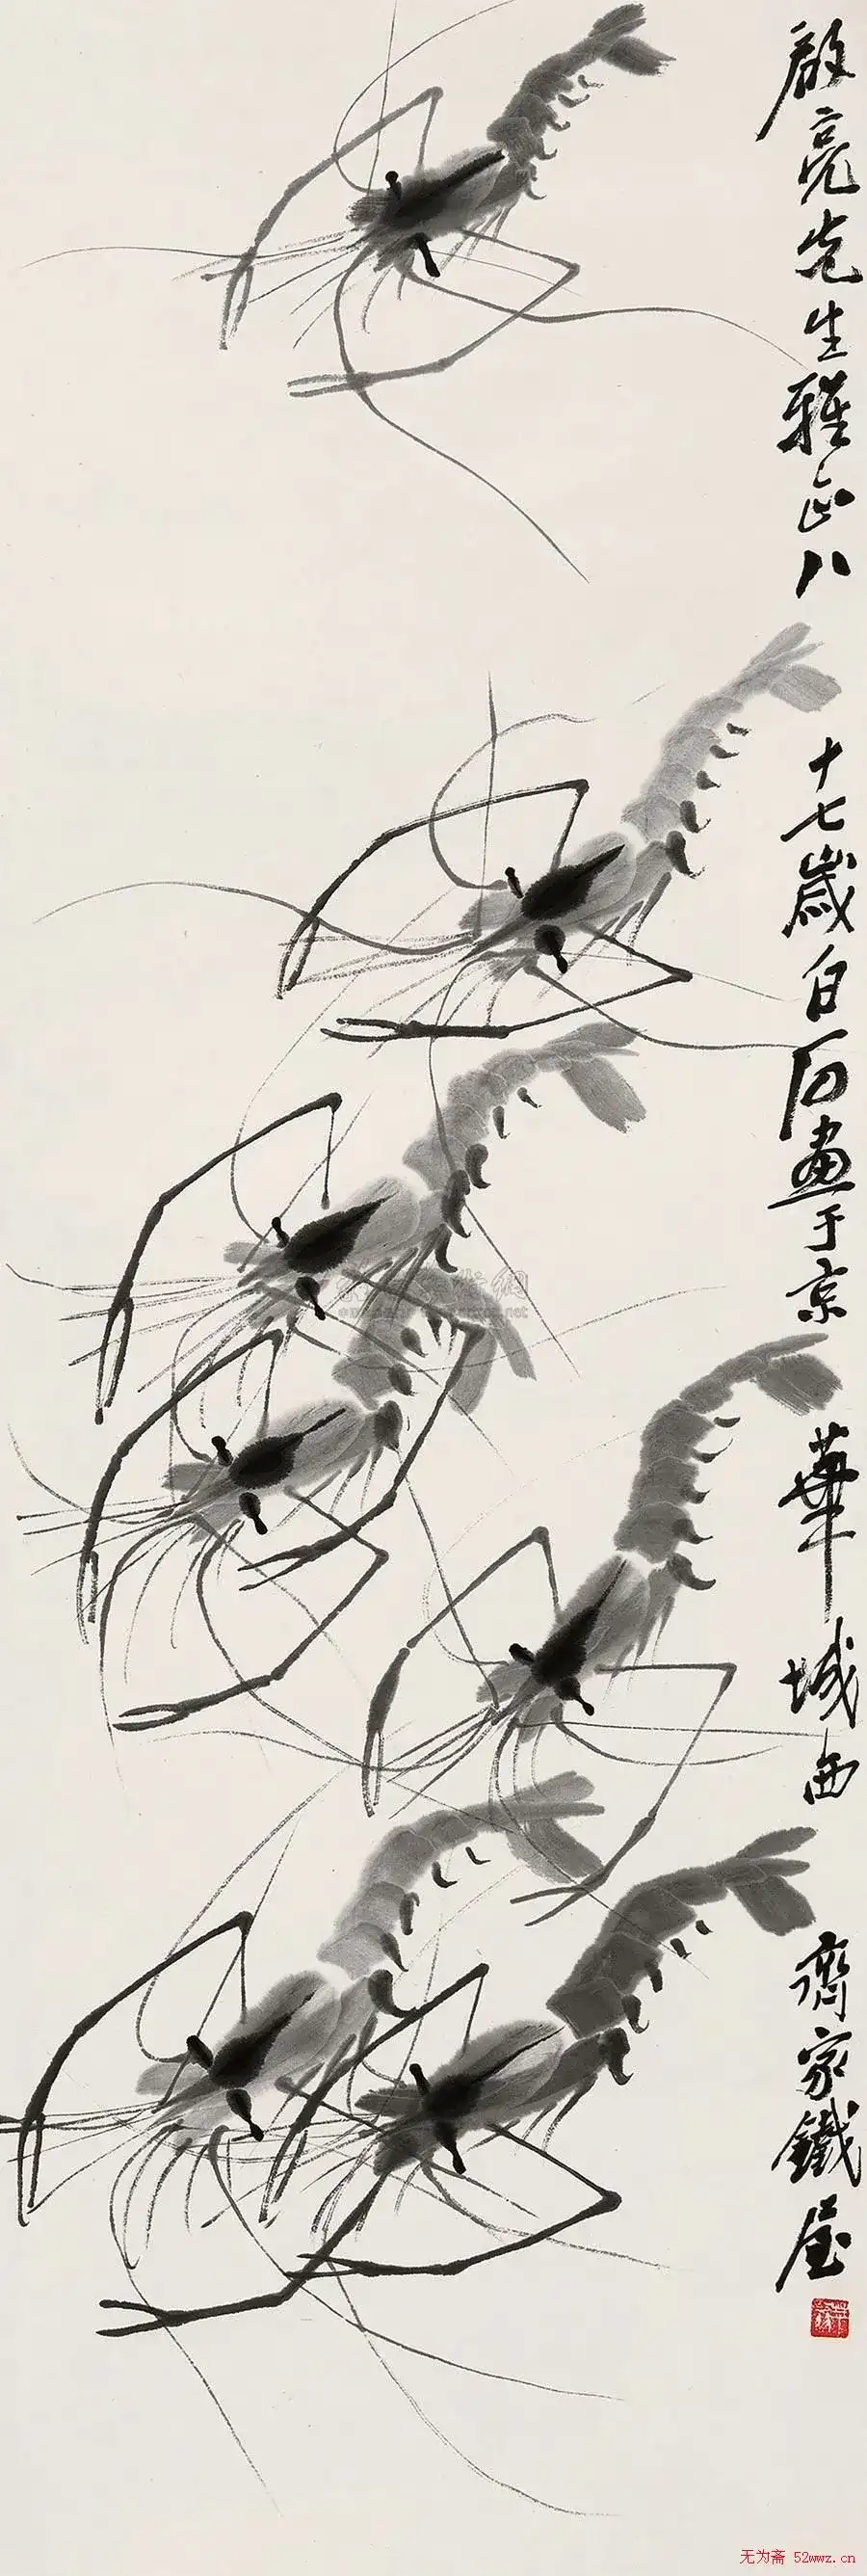 啟亮先生雅正八十七歲白石畫于京華城西齊家鐵屋
无为斋 52wwz.cn